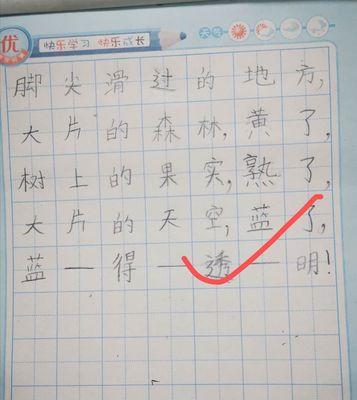 优
快乐学习 快乐成长
天气
脚尖滑过的地方,
大片的森林,黄了,
树上的果实,熟了,
大片的天空,蓝了,
蓝一得一透一明!